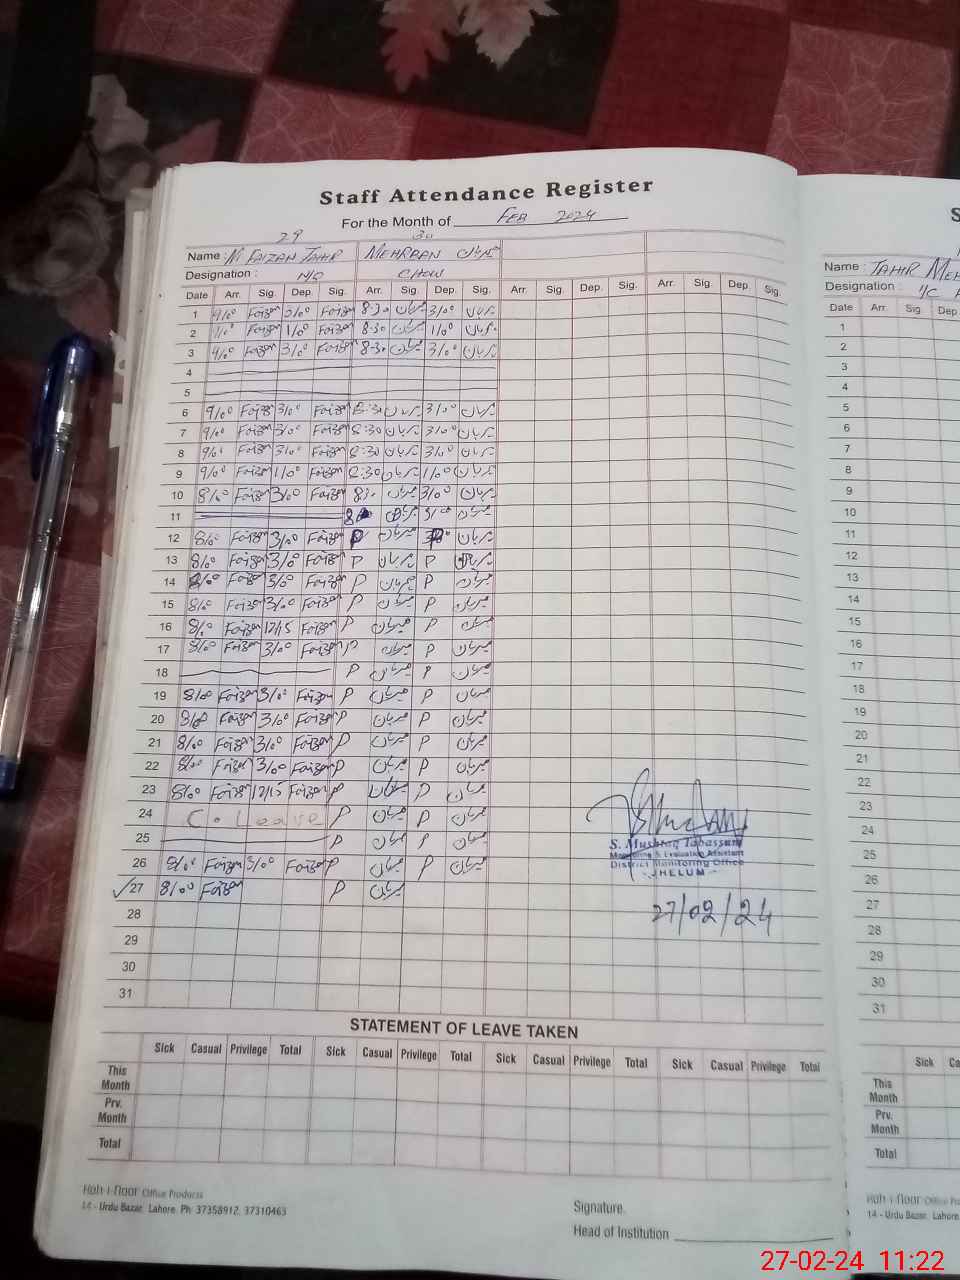 Staff Attendance Register
For the Month of FEB 2024
29 30
Name : M FAIZAN TAHIR MEHRBAN مہربان
Designation : N/Q CHOW
Date Arr. Sig. Dep. Sig. Arr. Sig. Dep. Sig. Arr. Sig. Dep. Sig. Arr. Sig. Dep. Sig.
1 9/00 Faizan 3/00 Faizan 8:30 مہربان 3/00 مہربان
2 9/00 Faizan 1/00 Faizan 8:30 مہربان 1/00 مہربان
3 9/00 Faizan 3/00 Faizan 8:30 مہربان 3/00 مہربان
4
5
6 9/00 Faizan 3/00 Faizan 8:30 مہربان 3/00 مہربان
7 9/00 Faizan 3/00 Faizan 8:30 مہربان 3/00 مہربان
8 9/00 Faizan 3/00 Faizan 8:30 مہربان 3/00 مہربان
9 9/00 Faizan 1/00 Faizan 8:30 مہربان 1/00 مہربان
10 8/00 Faizan 3/00 Faizan 8:30 مہربان 3/00 مہربان
11 مہربان 3/00 مہربان
12 8/00 Faizan 3/00 Faizan P مہربان مہربان
13 8/00 Faizan 3/00 Faizan P مہربان P مہربان
14 8/00 Faizan 3/00 Faizan P مہربان P مہربان
15 8/00 Faizan 3/00 Faizan P مہربان P مہربان
16 8/00 Faizan 12/15 Faizan P مہربان P مہربان
17 8/00 Faizan 3/00 Faizan P مہربان P مہربان
18 P مہربان P مہربان
19 8/00 Faizan 3/00 Faizan P مہربان P مہربان
20 8/00 Faizan 3/00 Faizan P مہربان P مہربان
21 8/00 Faizan 3/00 Faizan P مہربان P مہربان
22 8/00 Faizan 3/00 Faizan P مہربان P مہربان
23 8/00 Faizan 12/15 Faizan P مہربان P مہربان
24 C. Leave P مہربان P مہربان
25 P مہربان P مہربان
26 8/00 Faizan 3/00 Faizan P مہربان P مہربان
27 8/00 Faizan P مہربان
28
29
30
31
S. Mushtaq Tabassum
Monitoring & Evaluation Assistant
District Monitoring Office
JHELUM
27/02/24
STATEMENT OF LEAVE TAKEN
Sick Casual Privilege Total Sick Casual Privilege Total Sick Casual Privilege Total Sick Casual Privilege Total
This Month
Prv. Month
Total
Koh-i-Noor Office Products
14 - Urdu Bazar, Lahore. Ph: 37358912, 37310463
Signature.
Head of Institution
S
Name : TAHIR MEH
Designation : I/C
Date Arr. Sig Dep
1
2
3
4
5
6
7
8
9
10
11
12
13
14
15
16
17
18
19
20
21
22
23
24
25
26
27
28
29
30
31
Sick Ca
This Month
Prv. Month
Total
Koh-i-Noor Office P
14 - Urdu Bazar, Lahore
27-02-24 11:22